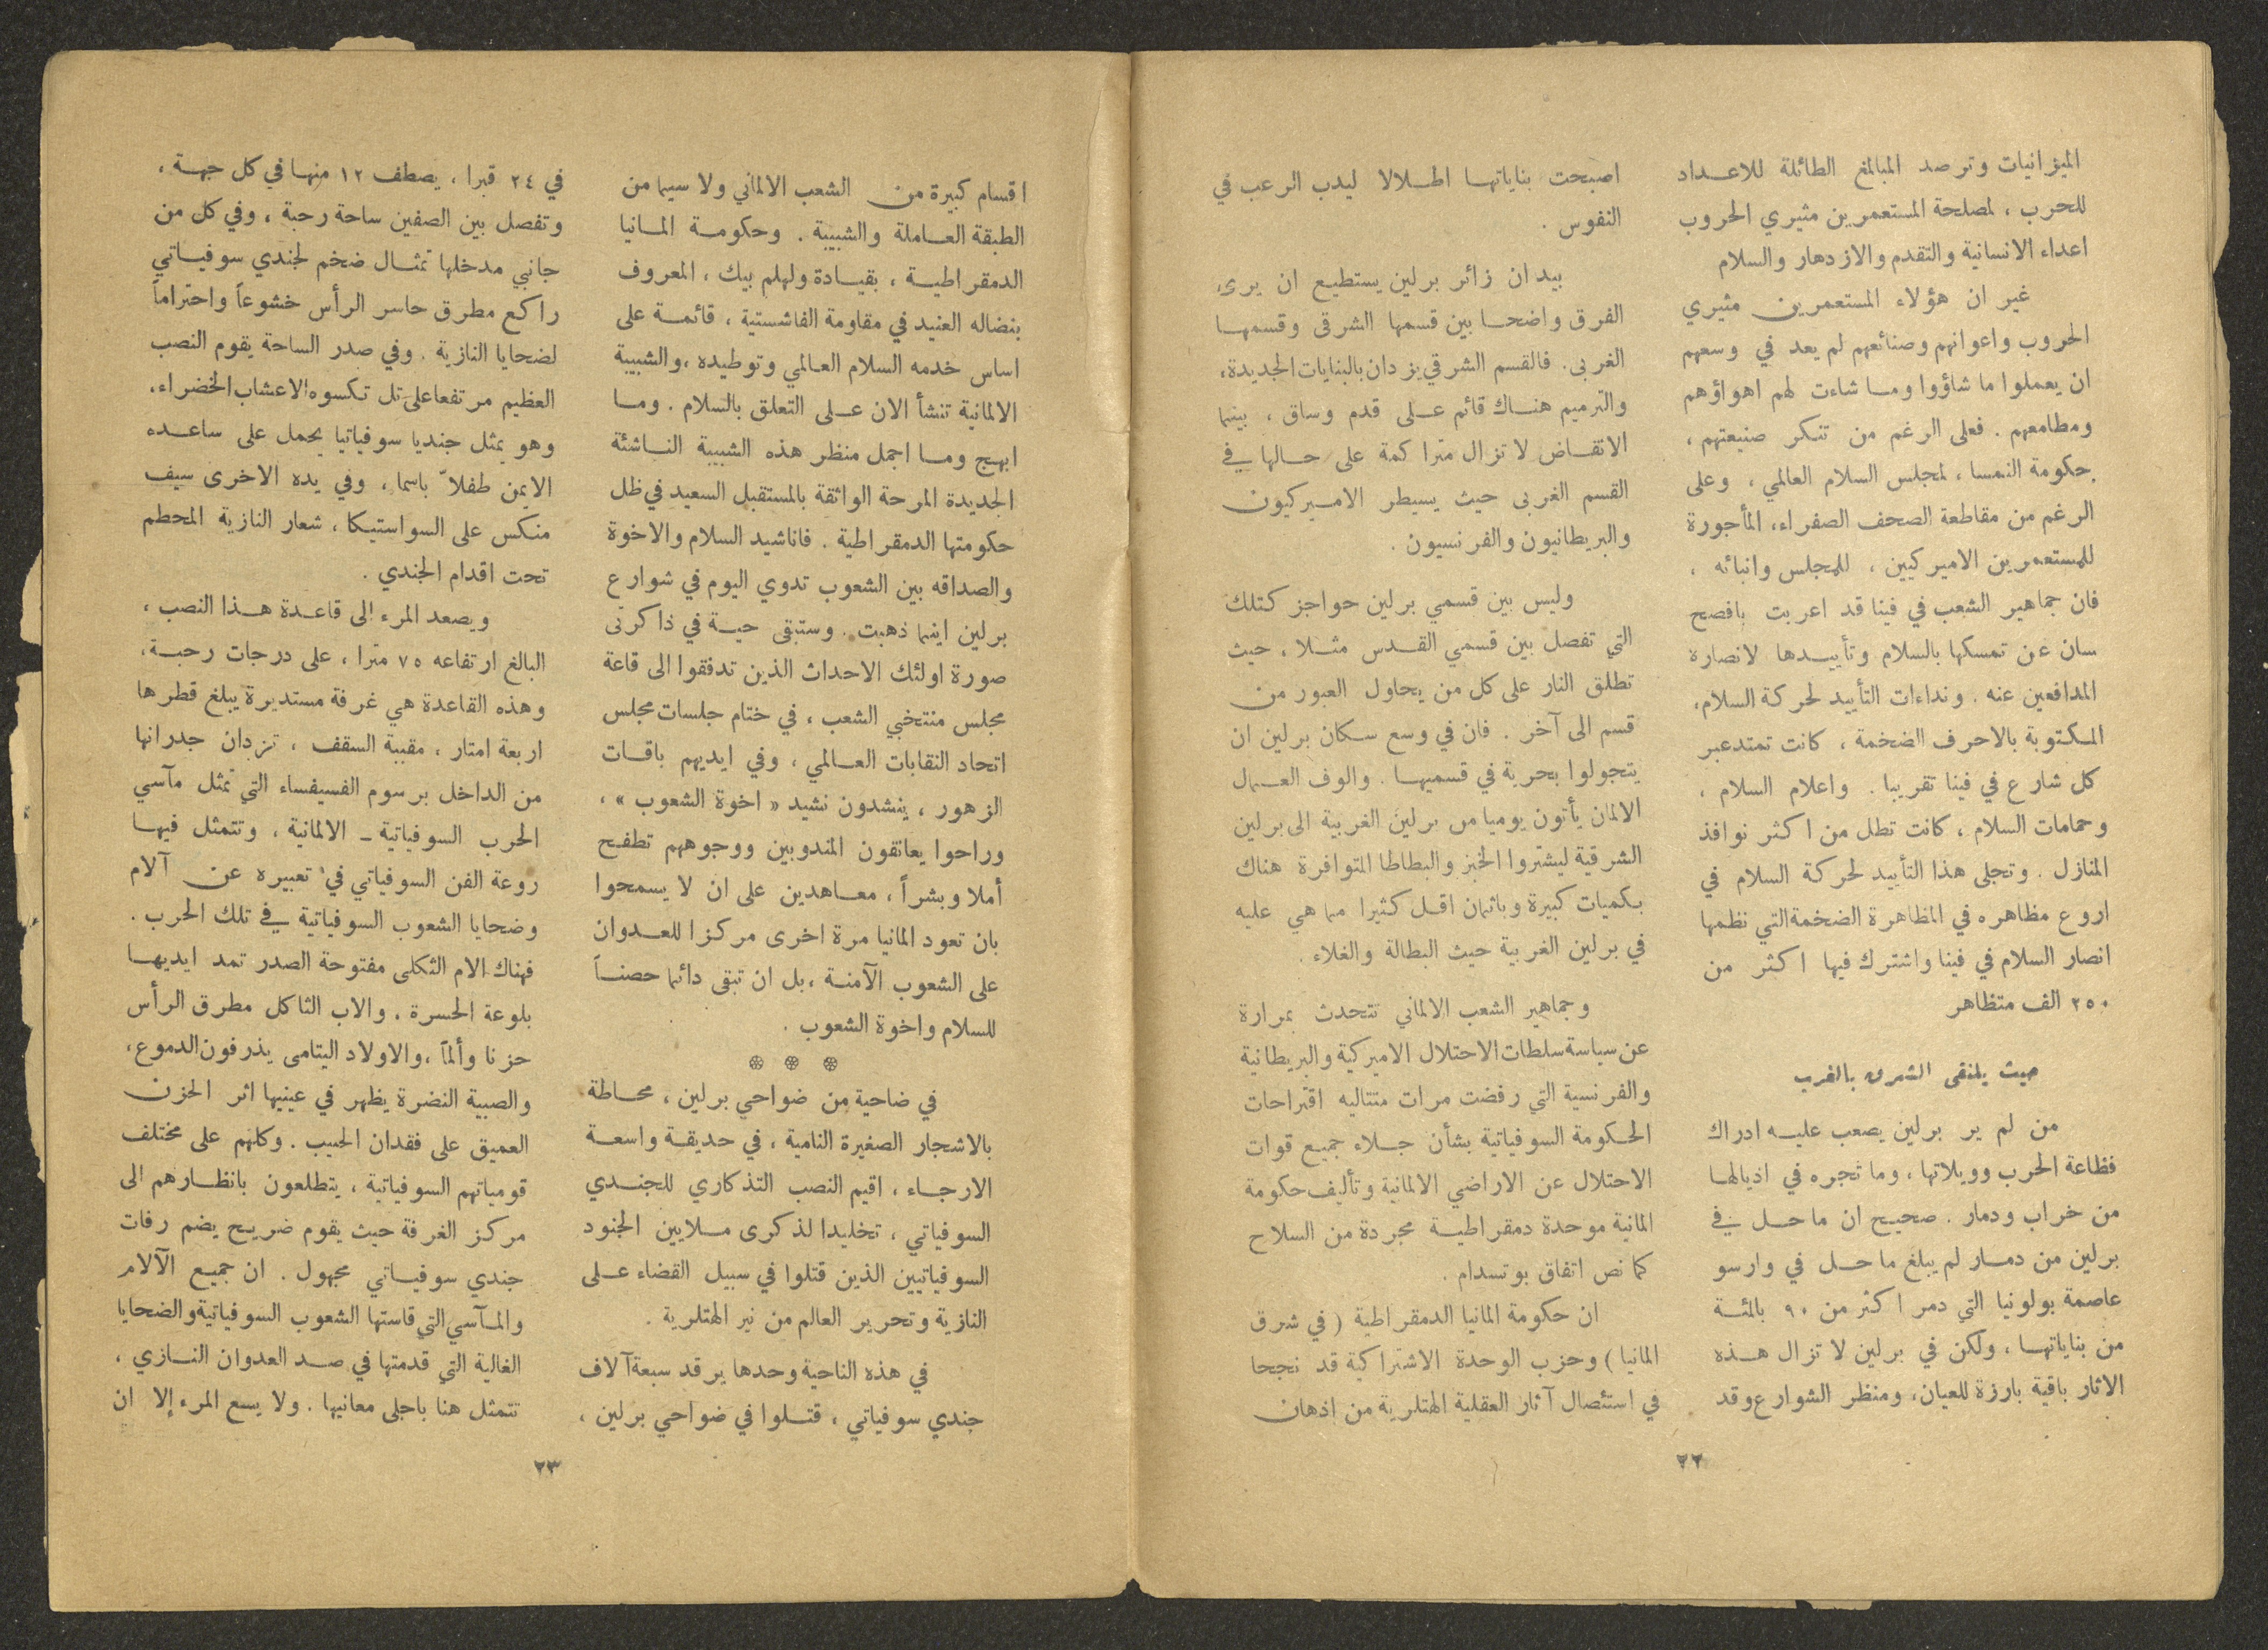 الميزانيات وترصد المبالغ الطائلة للاعداد
للحرب ، لمصلحة المستعمرين مثيري الحروب
اعداء الانسانية والتقدم والازدهار والسلام
غير ان هؤلاء المستعمرين مثيري
الحروب واعوانهم وصنائعهم لم يعد في وسعهم
ان يعملوا ما شاؤوا وما شاءت لهم اهواؤهم
ومطامعهم . فعلى الرغم من تنكر صنيعتهم ،
حكومة النمسا ، لمجلس السلام العالمي ، وعلى
الرغم من مقاطعة الصحف الصفراء ، المأجورة
للمستعمرين الاميركيين ، للمجلس وانبائه ،
فان جماهير الشعب في فينا قد اعربت بافصح
سان عن تمسكها بالسلام وتأييدها لانصاره
المدافعين عنه . ونداءات التأييد لحركة السلام ،
المكتوبة بالاحرف الضخمة ، كانت تمتد عبر
كل شارع في فينا تقريبا . واعلام السلام ،
وحمامات السلام ، كانت تطل من اكثر نوافذ
المنازل . وتجلى هذا التأييد لحركة السلام في
اروع مظاهره في المظاهرة الضخمة التي نظمها
انصار السلام في فينا واشترك فيها اكثر من
٢٥٠ الف متظاهر
حيث يلتقى الشرق بالغرب
من لم ير برلين يصعب عليه ادراك
فظاعة الحرب وويلاتها ، وما تجره في اذيالها
من خراب ودمار . صحيح ان ما حل في
برلين من دمار لم يبلغ ما حل في وارسو
عاصمة بولونيا التي دمر اكثر من ٩٠ بالمئة
من بناياتها ، ولكن في برلين لا تزال هذه
الاثار باقية بارزة للعيان ، ومنظر الشوارع وقد
اصبحت بناياتها اطلالا ليدب الرعب في
النفوس .
بيد ان زائر برلين يستطيع ان يرى ،
الفرق واضحا بين قسمها الشرقى وقسمها
الغربى . فالقسم الشرقي يزدان بالبنايات الجديدة ،
والترميم هناك قائم على قدم وساق ، بينما
الانقاض لا تزال متراكمة على حالها في
القسم الغربى حيث يسيطر الاميركيون
والبريطانيون والفرنسيون .
وليس بين قسمي برلين حواجز كتلك
التي تفصل بين قسمي القدس مثلا ، حيث
تطلق النار على كل من يحاول العبور من
قسم الى آخر . فان في وسع سكان برلين ان
يتجولوا بحرية في قسميها . والوف العمال
الالمان يأتون يوميا من برلين الغربية الى برلين
الشرقية ليشتروا الخبز والبطاطا المتوافرة هناك
بكميات كبيرة وباثمان اقل كثيرا مما هي عليه
في برلين الغربية حيث البطالة والغلاء .
وجماهير الشعب الالماني تتحدث بمرارة
عن سياسة سلطات الاحتلال الاميركية والبريطانية
والفرنسية التي رفضت مرات متتاليه اقتراحات
الحكومة السوفياتية بشأن جلاء جميع قوات
الاحتلال عن الاراضي الالمانية وتأليف حكومة
المانية موحدة دمقراطية مجردة من السلاح
كما نص اتفاق بوتسدام .
ان حكومة المانيا الدمقراطية ( في شرق
المانيا ) وحزب الوحدة الاشتراكية قد نجحا
في استئصال آثار العقلية الهتلرية من اذهان
٢٢
اقسام كبيرة من الشعب الالماني ولا سيما من
الطبقة العاملة والشبيبة . وحكومة المانيا
الدمقراطية ، بقيادة ولهلم بيك ، المعروف
بنضاله العنيد في مقاومة الفاشستية ، قائمة على
اساس خدمه السلام العالمي وتوطيده ، والشبيبة
الالمانية تنشأ الان على التعلق بالسلام . وما
ابهج وما اجمل منظر هذه الشبيبة الناشئة
الجديدة المرحة الواثقة بالمستقبل السعيد في ظل
حكومتها الدمقراطية . فاناشيد السلام والاخوة
والصداقه بين الشعوب تدوي اليوم في شوارع
برلين اينما ذهبت . وستبقى حية في ذاكرتى
صورة اولئك الاحداث الذين تدفقوا الى قاعة
مجلس منتخبي الشعب ، في ختام جلسات مجلس
اتحاد النقابات العالمي ، وفي ايديهم باقات
الزهور ، ينشدون نشيد « اخوة الشعوب » ،
وراحوا يعانقون المندوبين ووجوههم تطفح
أملا وبشراً ، معاهدين على ان لا يسمحوا
بان تعود المانيا مرة اخرى مركزا للعدوان
على الشعوب الآمنة ، بل ان تبقى دائما حصناً
للسلام واخوة الشعوب .
* * *
في ضاحية من ضواحي برلين ، محاطة
بالاشجار الصغيرة النامية ، في حديقة واسعة
الارجاء ، اقيم النصب التذكاري للجندي
السوفياتي ، تخليدا لذكرى ملايين الجنود
السوفياتيين الذين قتلوا في سبيل القضاء على
النازية وتحرير العالم من نير الهتلرية .
في هذه الناحية وحدها يرقد سبعة آلاف
جندي سوفياتي ، قتلوا في ضواحي برلين ،
في ٢٤ قبرا ، يصطف ١٢ منها في كل جهة ،
وتفصل بين الصفين ساحة رحبة ، وفي كل من
جانبي مدخلها تمثال ضخم لجندي سوفياتي
راكع مطرق حاسر الرأس خشوعاً واحتراماً
لضحايا النازية . وفي صدر الساحة يقوم النصب
العظيم مرتفعا على تل تكسوه الاعشاب الخضراء ،
وهو يمثل جنديا سوفياتيا يحمل على ساعده
الايمن طفلاً باسما ، وفي يده الاخرى سيف
منكس على السواستيكا ، شعار النازية المحطم
تحت اقدام الجندي .
ويصعد المرء الى قاعدة هذا النصب ،
البالغ ارتفاعه ٧٥ مترا ، على درجات رحبة ،
وهذه القاعدة هي غرفة مستديرة يبلغ قطرها
اربعة امتار ، مقببة السقف ، تزدان جدرانها
من الداخل برسوم الفسيفساء التي تمثل مآسي
الحرب السوفياتية - الالمانية ، وتتمثل فيها
روعة الفن السوفياتي في تعبيره عن آلام
وضحايا الشعوب السوفياتية في تلك الحرب .
فهناك الام الثكلى مفتوحة الصدر تمد ايديها
بلوعة الحسرة . والاب الثاكل مطرق الرأس
حزنا وألماً ، والاولاد اليتامى يذرفون الدموع ،
والصبية النضرة يظهر في عينيها اثر الحزن
العميق على فقدان الحبيب . وكلهم على مختلف
قومياتهم السوفياتية ، يتطلعون بانظارهم الى
مركز الغرفة حيث يقوم ضريح يضم رفات
جندي سوفياتي مجهول . ان جميع الآلام
والمآسي التي قاستها الشعوب السوفياتية والضحايا
الغالية التي قدمتها في صد العدوان النازي ،
تتمثل هنا باجلى معانيها . ولا يسع المرء إلا ان
٢٣